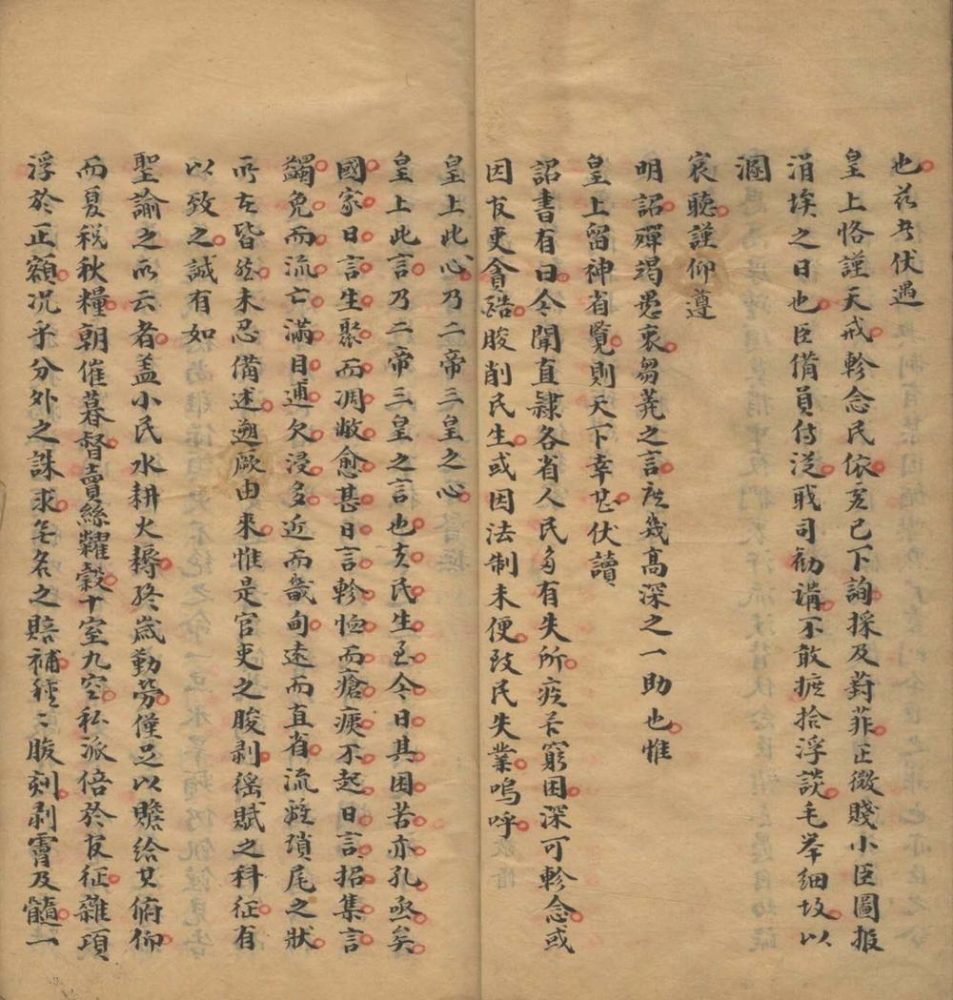 也茲者伏遇
皇上恪謹天戒軫念民依亥已下詢採及葑菲正微賤小臣圖報
涓埃之日也臣備員侍從戢司勸講不敢摭拾浮談毛举細故以
溷
宸聽謹仰遵
明詔殫竭愚衷芻荛之言庶幾高深之一助也惟
皇上留神省覧則天下幸甚伏讀
詔書有曰今聞直隸各省人民多有失所疾苦窮困深可軫念或
因官吏貪酷朘削民生或因法制未便致民失業嗚呼
皇上此心乃二帝三皇之心
皇上此言乃二帝三皇之言也夫民生至今日其困苦亦孔亟矣
國家日言生聚而凋敝愈甚日言軫恤而瘡痍不起日言招集言
蠲免而流亡滿目逋欠浸多近而畿甸遠而直省流離瑣尾之狀
所在皆然未忍備述遡厥由來惟是官吏之朘剥徭賦之科征有
以致之誠有如
聖諭之所云者盖小民水耕火耨終歲勤勞僅足以贍給其俯仰
而夏稅秋糧朝催暮督賣絲糶穀十室九空私派倍於官征雜項
浮於正額况乎分外之誅求無名之賠補種〻朘刻剥膏及髓一